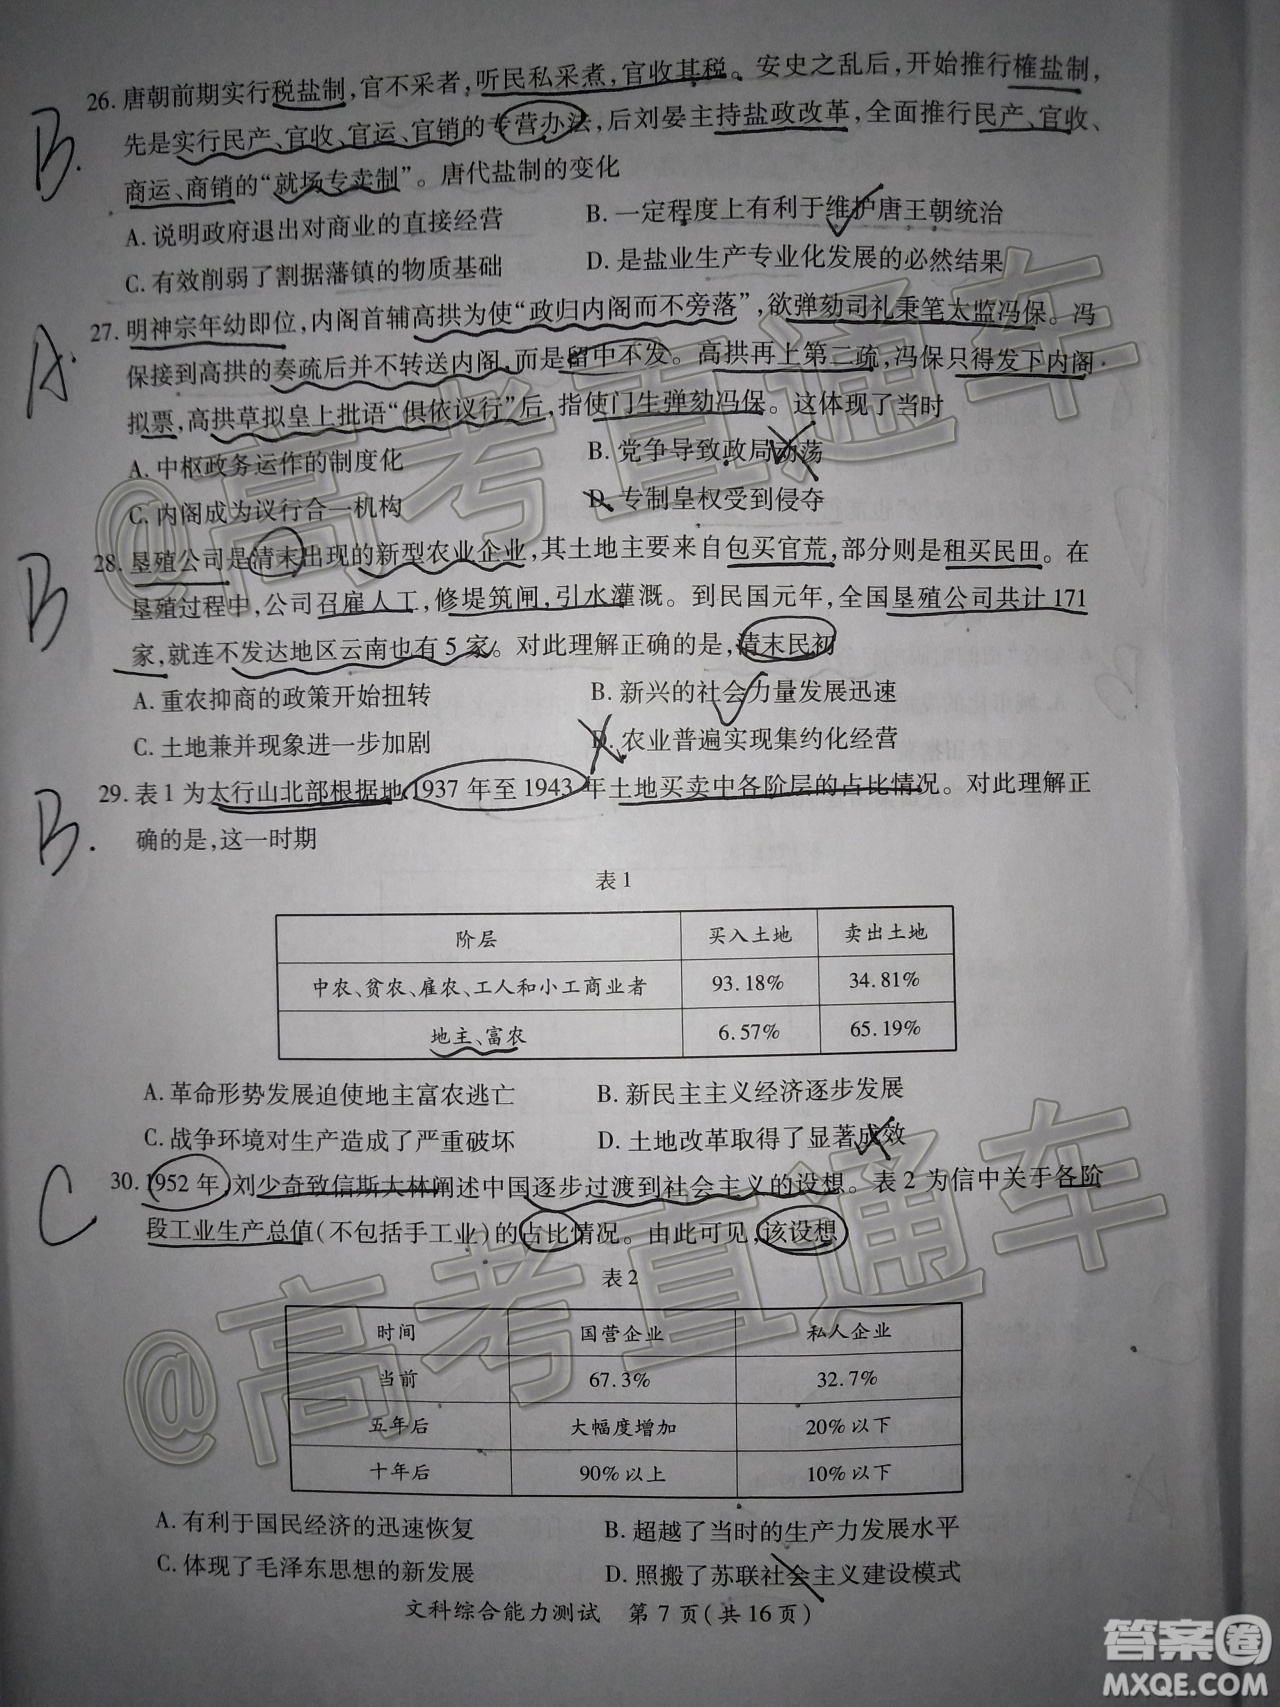 26. 唐朝前期实行税盐制，官不采者，听民私采煮，官收其税。安史之乱后，开始推行榷盐制，
先是实行民产、官收、官运、官销的专营办法，后刘晏主持盐政改革，全面推行民产、官收、
商运、商销的“就场专卖制”。唐代盐制的变化
A. 说明政府退出对商业的直接经营
B. 一定程度上有利于维护唐王朝统治
C. 有效削弱了割据藩镇的物质基础
D. 是盐业生产专业化发展的必然结果
B.
27. 明神宗年幼即位，内阁首辅高拱为使“政归内阁而不旁落”，欲弹劾司礼秉笔太监冯保。冯
保接到高拱的奏疏后并不转送内阁，而是留中不发。高拱再上第二疏，冯保只得发下内阁
拟票，高拱草拟皇上批语“俱依议行”后，指使门生弹劾冯保。这体现了当时
A. 中枢政务运作的制度化
B. 党争导致政局动荡
C. 内阁成为议行合一机构
D. 专制皇权受到侵夺
A.
28. 垦殖公司是清末出现的新型农业企业，其土地主要来自包买官荒，部分则是租买民田。在
垦殖过程中，公司召雇人工，修堤筑闸，引水灌溉。到民国元年，全国垦殖公司共计 171
家，就连不发达地区云南也有 5 家。对此理解正确的是，清末民初
A. 重农抑商的政策开始扭转
B. 新兴的社会力量发展迅速
C. 土地兼并现象进一步加剧
D. 农业普遍实现集约化经营
B
29. 表 1 为太行山北部根据地 1937 年至 1943 年土地买卖中各阶层的占比情况。对此理解正
确的是，这一时期
B.
表 1
阶层 买入土地 卖出土地
中农、贫农、雇农、工人和小工商业者 93.18% 34.81%
地主、富农 6.57% 65.19%
A. 革命形势发展迫使地主富农逃亡
B. 新民主主义经济逐步发展
C. 战争环境对生产造成了严重破坏
D. 土地改革取得了显著成效
30. 1952 年，刘少奇致信斯大林阐述中国逐步过渡到社会主义的设想。表 2 为信中关于各阶
段工业生产总值（不包括手工业）的占比情况。由此可见，该设想
C
表 2
时间 国营企业 私人企业
当前 67.3% 32.7%
五年后 大幅度增加 20% 以下
十年后 90% 以上 10% 以下
A. 有利于国民经济的迅速恢复
B. 超越了当时的生产力发展水平
C. 体现了毛泽东思想的新发展
D. 照搬了苏联社会主义建设模式
文科综合能力测试 第 7 页（共 16 页）
@高考直通车
@高考直通车
答案圈
MXQE.COM